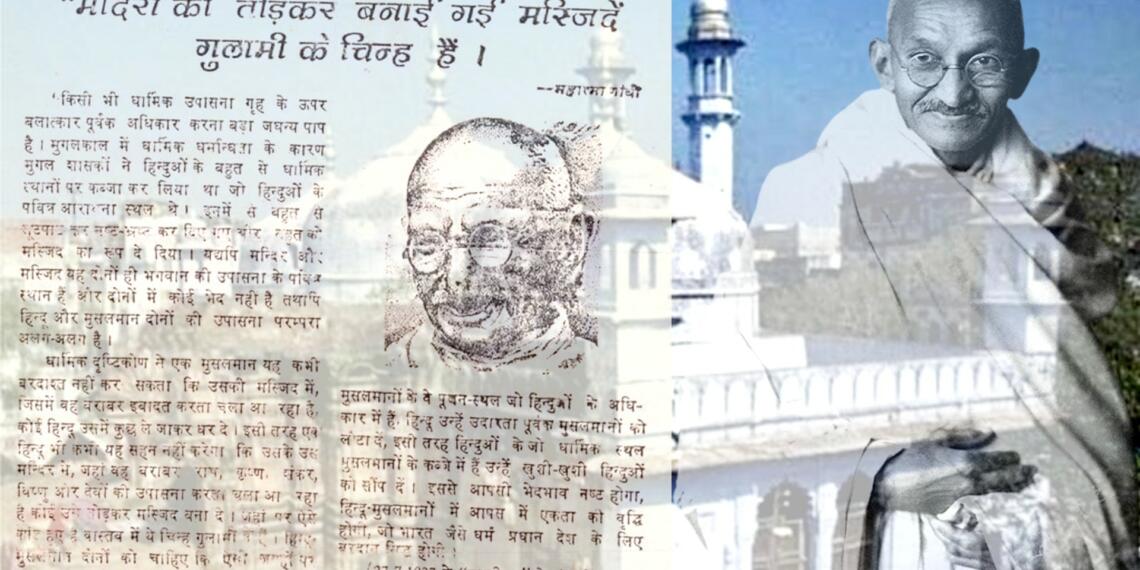 "मंदिरों को तोड़कर बनाई गई मस्जिदें
गुलामी के चिन्ह हैं ।
--महात्मा गांधी
'किसी भी धार्मिक उपासना गृह के ऊपर
बलात्कार पूर्वक अधिकार करना बड़ा जघन्य पाप
है । मुगलकाल में धार्मिक धर्मान्धता के कारण
मुगल शासकों ने हिन्दुओं के बहुत से धार्मिक
स्थानों पर कब्जा कर लिया था जो हिन्दुओं के
पवित्र आराधना स्थल थे । इनमें से बहुत से
लूटपाट कर नष्ट-भ्रष्ट कर दिए गए और बहुत को
मस्जिद का रूप दे दिया । यद्यपि मन्दिर और
मस्जिद यह दोनों ही भगवान की उपासना के पवित्र
स्थान हैं और दोनों में कोई भेद नही है तथापि
हिन्दू और मुसलमान दोनों की उपासना परम्परा
अलग-अलग है ।
धार्मिक दृष्टिकोण ने एक मुसलमान यह कभी
बरदाश्त नहीं कर सकता कि उसकी मस्जिद में,
जिसमें वह बराबर इबादत करता चला आ रहा है,
कोई हिन्दू उसमें कुछ ले जाकर धर दे । इसी तरह एक
हिन्दू भी कभी यह सहन नहीं करेगा कि उसके उस
मन्दिर में, जहां वह बराबर राम, कृष्ण, शंकर,
विष्णु और देवी की उपासना करता चला आ रहा
है कोई उसे तोड़कर मस्जिद बना दे । जहां पर ऐसे
कांड हुए हैं वास्तव में ये चिन्ह गुलामी के हैं । हिन्दू
मुसलमान दोनों को चाहिए कि ऐसी जगहों पर
मुसलमानों के वे पूजन-स्थल जो हिन्दुओं के अधि-
कार में हैं, हिन्दू उन्हें उदारता पूर्वक मुसलमानों को
लौटा दें, इसी तरह हिन्दुओं के जो धार्मिक स्थल
मुसलमानों के कब्जे में हैं उन्हें खुशी-खुशी हिन्दुओं
को सौंप दें । इससे आपसी भेदभाव नष्ट होगा,
हिन्दू-मुसलमानों में आपस में एकता की वृद्धि
होगी, जो भारत जैसे धर्म प्रधान देश के लिए
वरदान सिद्ध होगी ।